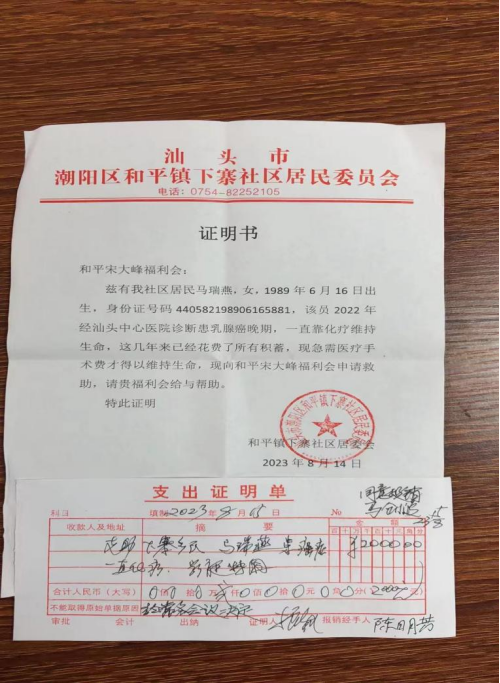 汕头市
潮阳区和平镇下寨社区居民委员会
电话：0754-82252105
证明书
和平宋大峰福利会：
兹有我社区居民马瑞燕，女，1989年6月16日出
生，身份证号码440582198906165881，该员2022年
经汕头中心医院诊断患乳腺癌晚期，一直靠化疗维持
生命，这几年来已经花费了所有积蓄，现急需医疗手
术费才得以维持生命，现向和平宋大峰福利会申请救
助，请贵福利会给与帮助。
特此证明
和平镇下寨社区居委会
2023年8月14日
支出证明单
科目 填制2023年8月15日 № 同意报销
收款人及地址 摘要 金额
支助下寨乡民马瑞燕患癌症 ¥200000
合计人民币（大写）0佰0拾0万贰仟0佰0拾0元0角0分（2000元）
不能取得原始单据原因 经常务会议决定
审批 会计 出纳 证明人 报销经手人